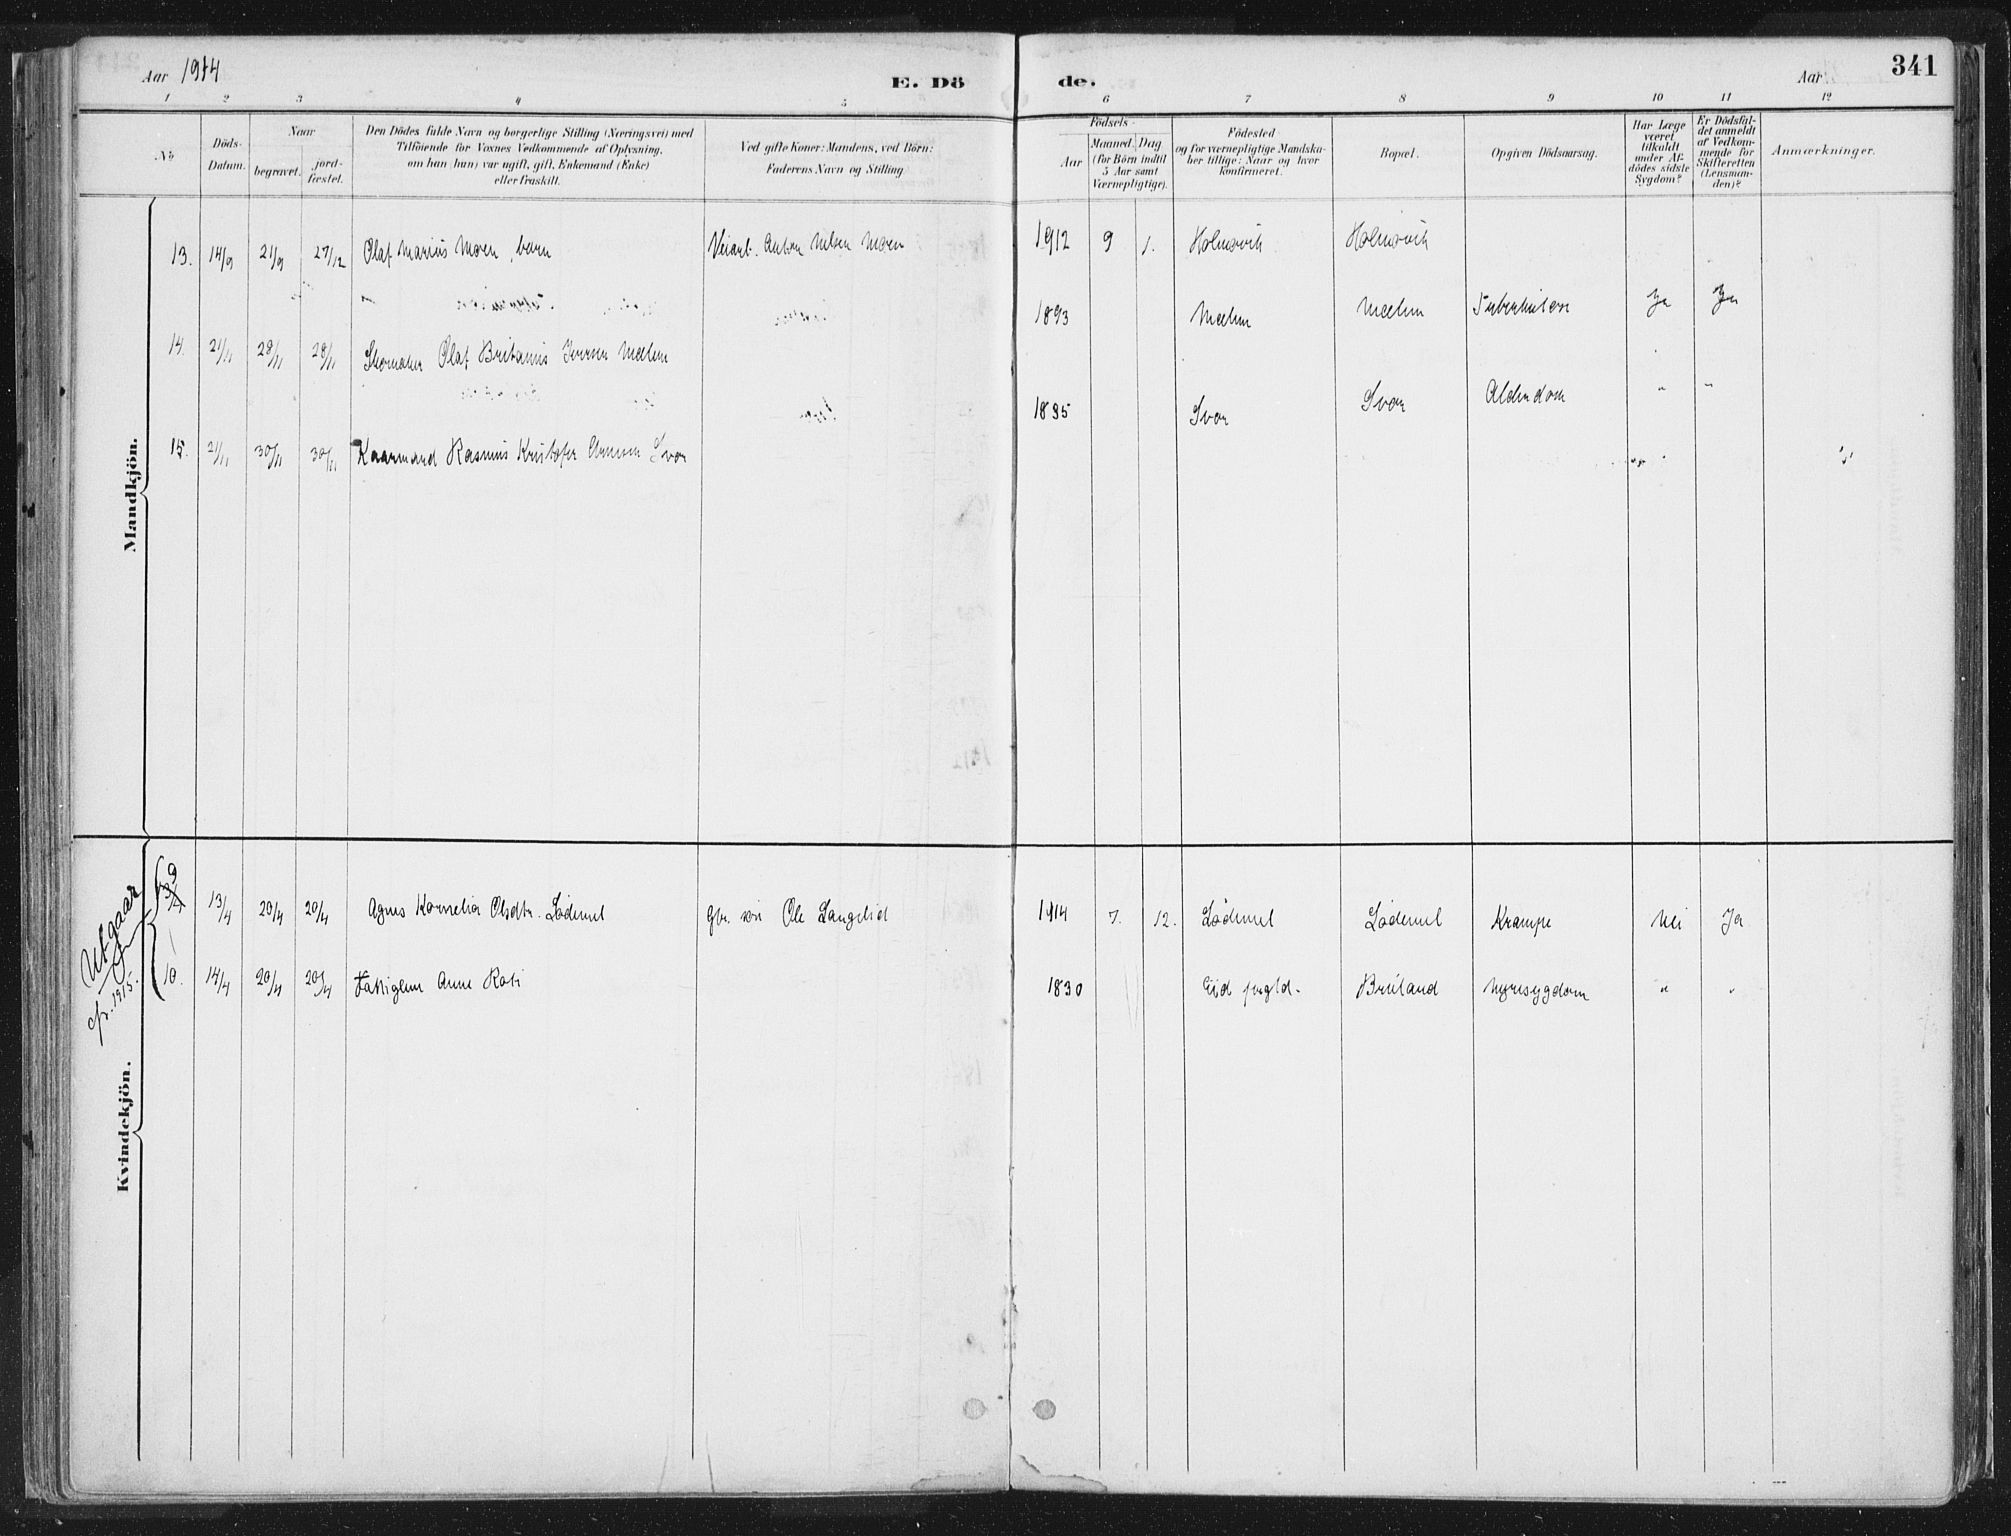 Aar 1914
E. Dö
de.
Aar
341
1 2 3 4 5 6 7 8 9 10 11 12
No
Döds-
Datum.
Naar
begravet.
jord-
fæstet.
Den Dödes fulde Navn og borgerlige Stilling (Næringsvei) med
Tilföiende for Voxnes Vedkommende af Oplysning,
om han (hun) var ugift, gift, Enkemand (Enke)
eller fraskilt.
Ved gifte Koner: Mandens, ved Börn:
Faderens Navn og Stilling
Födsels-
Aar
Maaned.
Dag
(for Börn indtil
5 Aar samt
Værnepligtige).
Födested
og for værnepligtige Mandska-
ber tillige: Naar og hvor
konfirmeret.
Bopæl.
Opgiven Dödsaarsag.
Har Læge
været
tilkaldt
under Af-
dödes sidste
Sygdom?
Er Dödsfal-
det anmeldt
af Vedkom-
mende for
Skifteretten
(Lensman-
den)?
Anmærkninger.
Mandkjön.
13. 14/9 21/9 27/12 Olaf Marius Moren, barn Veiarb. Anton Nilsen Moren 1912 9 1. Holmøvik Holmøvik
14. 21/11 28/11 28/11 Skomaker Olaf Britanus Iversen Mælem 1893 Mælem Mælem Tuberkulose Ja Ja
15. 21/11 30/11 30/11 Kaarmand Rasmus Kristofer Svor 1835 Svor Svor Alderdom " "
Kvindekjön.
Utgaar
cfr. 1915.
9 13/4 20/4 20/4 Agnes Kornelia Olsdtr. Lødemel Gbr. søn Ole Langelid 1914 7. 12. Lødemel Lødemel Krampe Nei Ja
10. 14/4 20/4 20/4 Fattiglem Anne Rasi 1830 Eid prgld. Brúland Nyresygdom " "